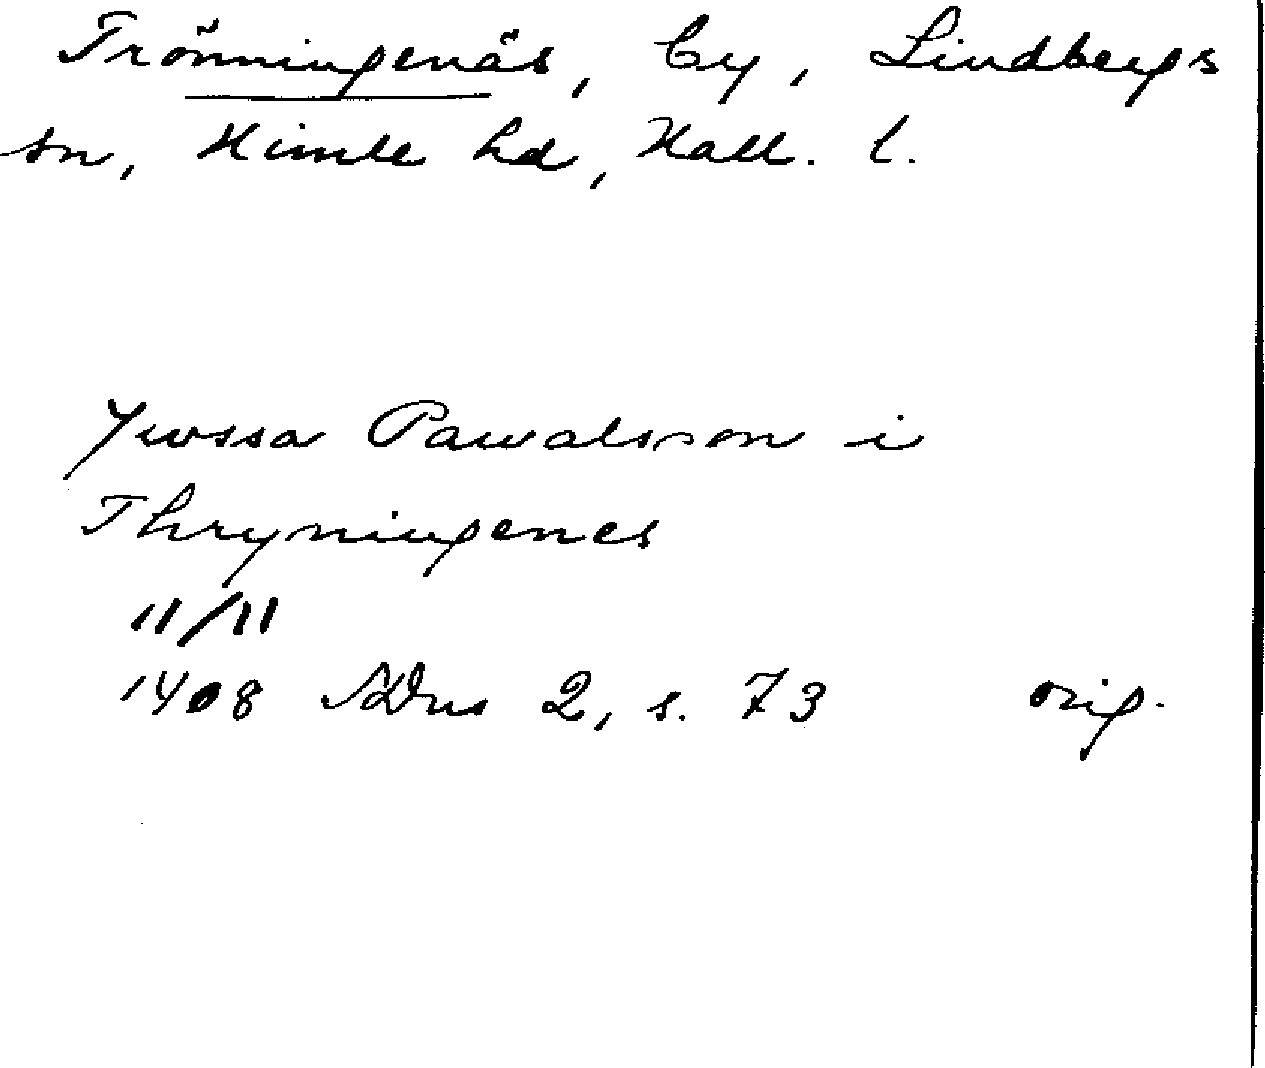 Trönningenäs, by, Lindbergs
sn, Himle hd, Hall. l.
Jwssa Pawalsson i
Thryningenes
11/11
1408 SDns 2, s. 73 orig.